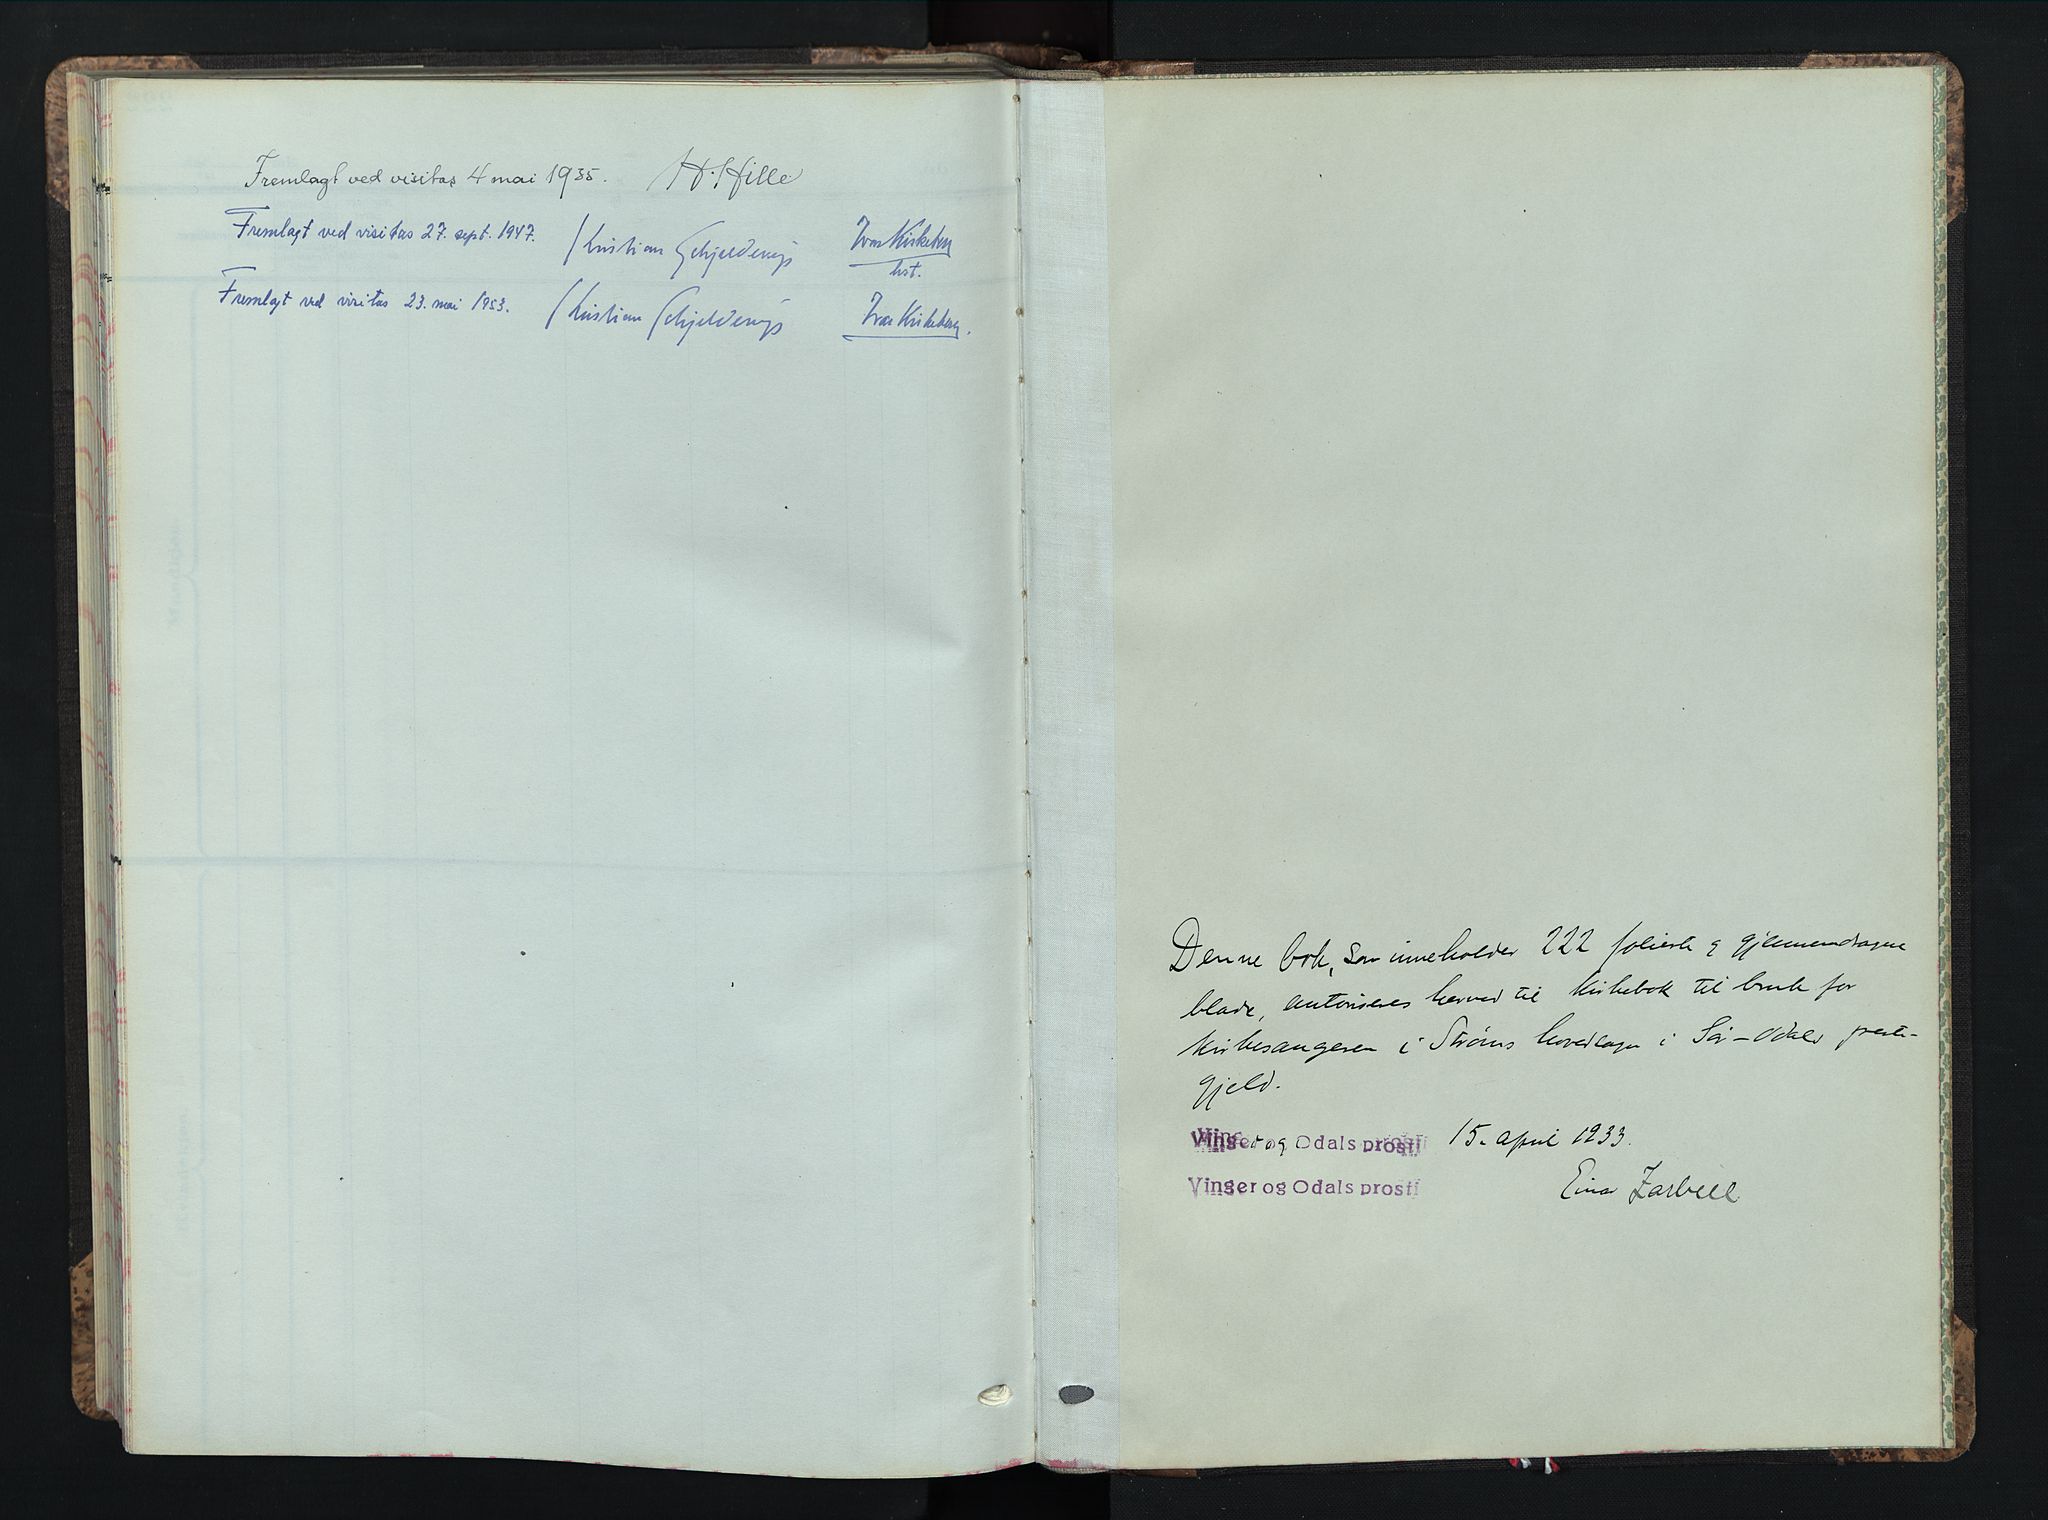 Fremlagt ved visitas 4 mai 1935. H. Hille
Fremlagt ved visitas 27. sept. 1947. Kristian Schjelderup Ivar Kirkeberg
Fremlagt ved visitas 23. mai 1953. Kristian Schjelderup Ivar Kirkeberg.
Denne bok, som inneholder 222 folierte og gjennemdragne
blade, autoriseres herved til kirkebok til bruk for
kirkesangeren i Strøms hovedsogn i Sør-Odal preste-
gjeld.
Vinger og Odals prosti 15. april 1933.
Vinger og Odals prosti Einar